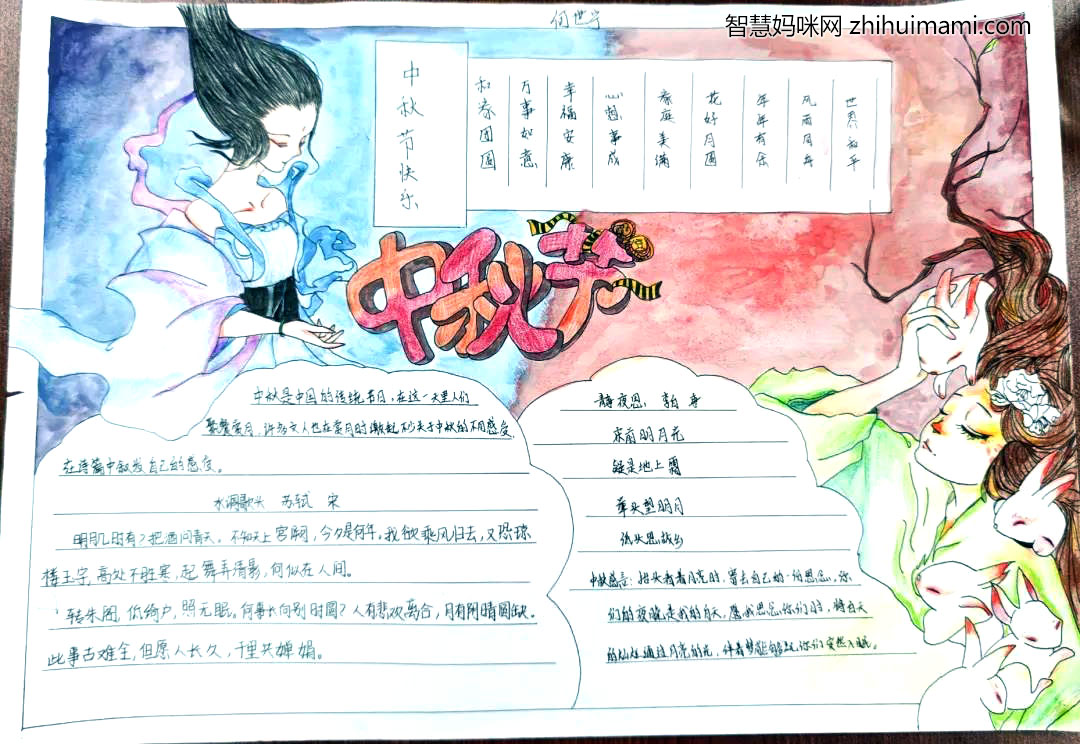 智慧妈咪网 zhihuimami.com
中秋节快乐
和泰团圆
万事如意
幸福安康
心想事成
家庭美满
花好月圆
年年有余
风雨同舟
世界和平
中秋节
中秋是中国的传统节日,在这一天里人们
聚餐赏月,许多文人也在赏月时激起不少关于中秋的不同感受,
在诗篇中叙发自己的感受。
水调歌头 苏轼 宋
明月几时有?把酒问青天。不知天上宫阙,今夕是何年,我欲乘风归去,又恐琼
楼玉宇,高处不胜寒,起舞弄清影,何似在人间。
转朱阁,低绮户,照无眠。何事长向别时圆?人有悲欢离合,月有阴晴圆缺。
此事古难全,但愿人长久,千里共婵娟。
静夜思,李白
床前明月光
疑是地上霜
举头望明月
低头思故乡
中秋感言:抬头看着月亮时,留去自己的一份思念,你
们的夜晚是我的白天,愿我思念你们时,将白天
的灿烂通过月亮的光,伴着梦能够让你们安然入眠。